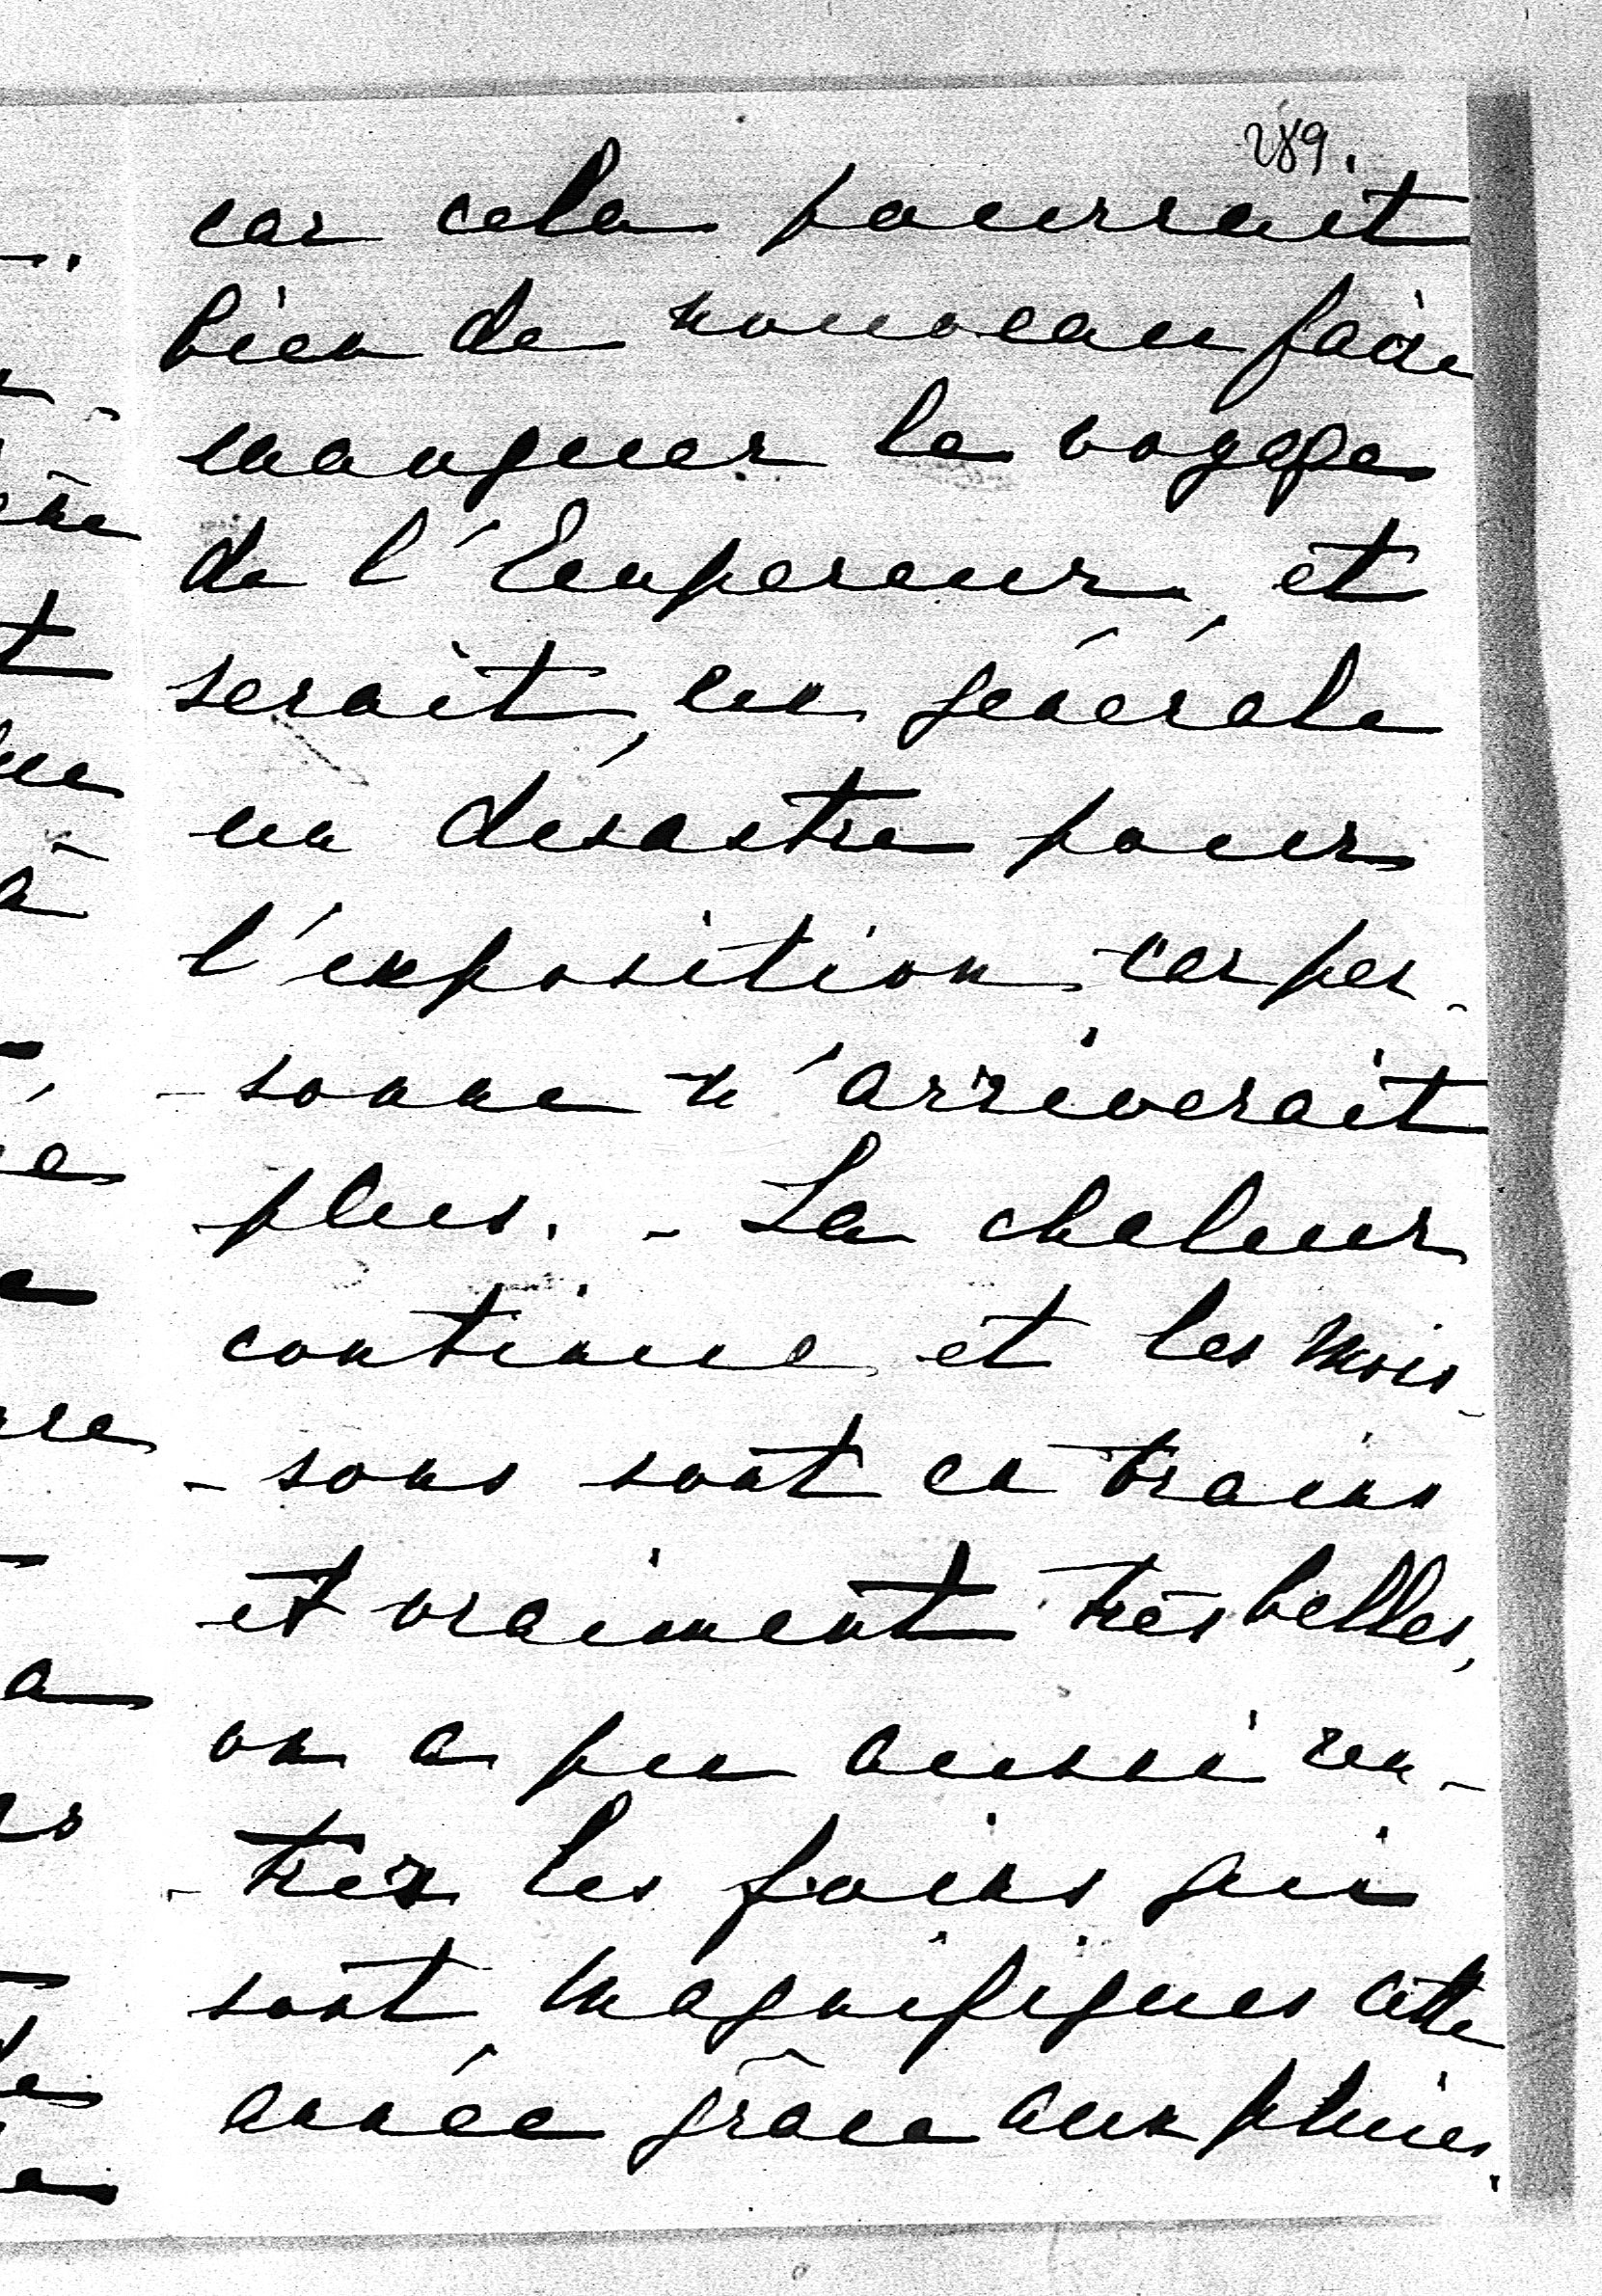 289.
car cela pourrait
bien de nouveau faire
manquer le voyage
de l'Empereur, et
serait, en générale
un désastre pour
l'exposition car per-
-sonne n'arriverait
plus. - La chaleur
continue et les mois-
-sons sont en trains
et vraiment très belles,
on a pu aussi ren-
-trer les foins qui
sont magnifiques cette
année grâce aux pluies.